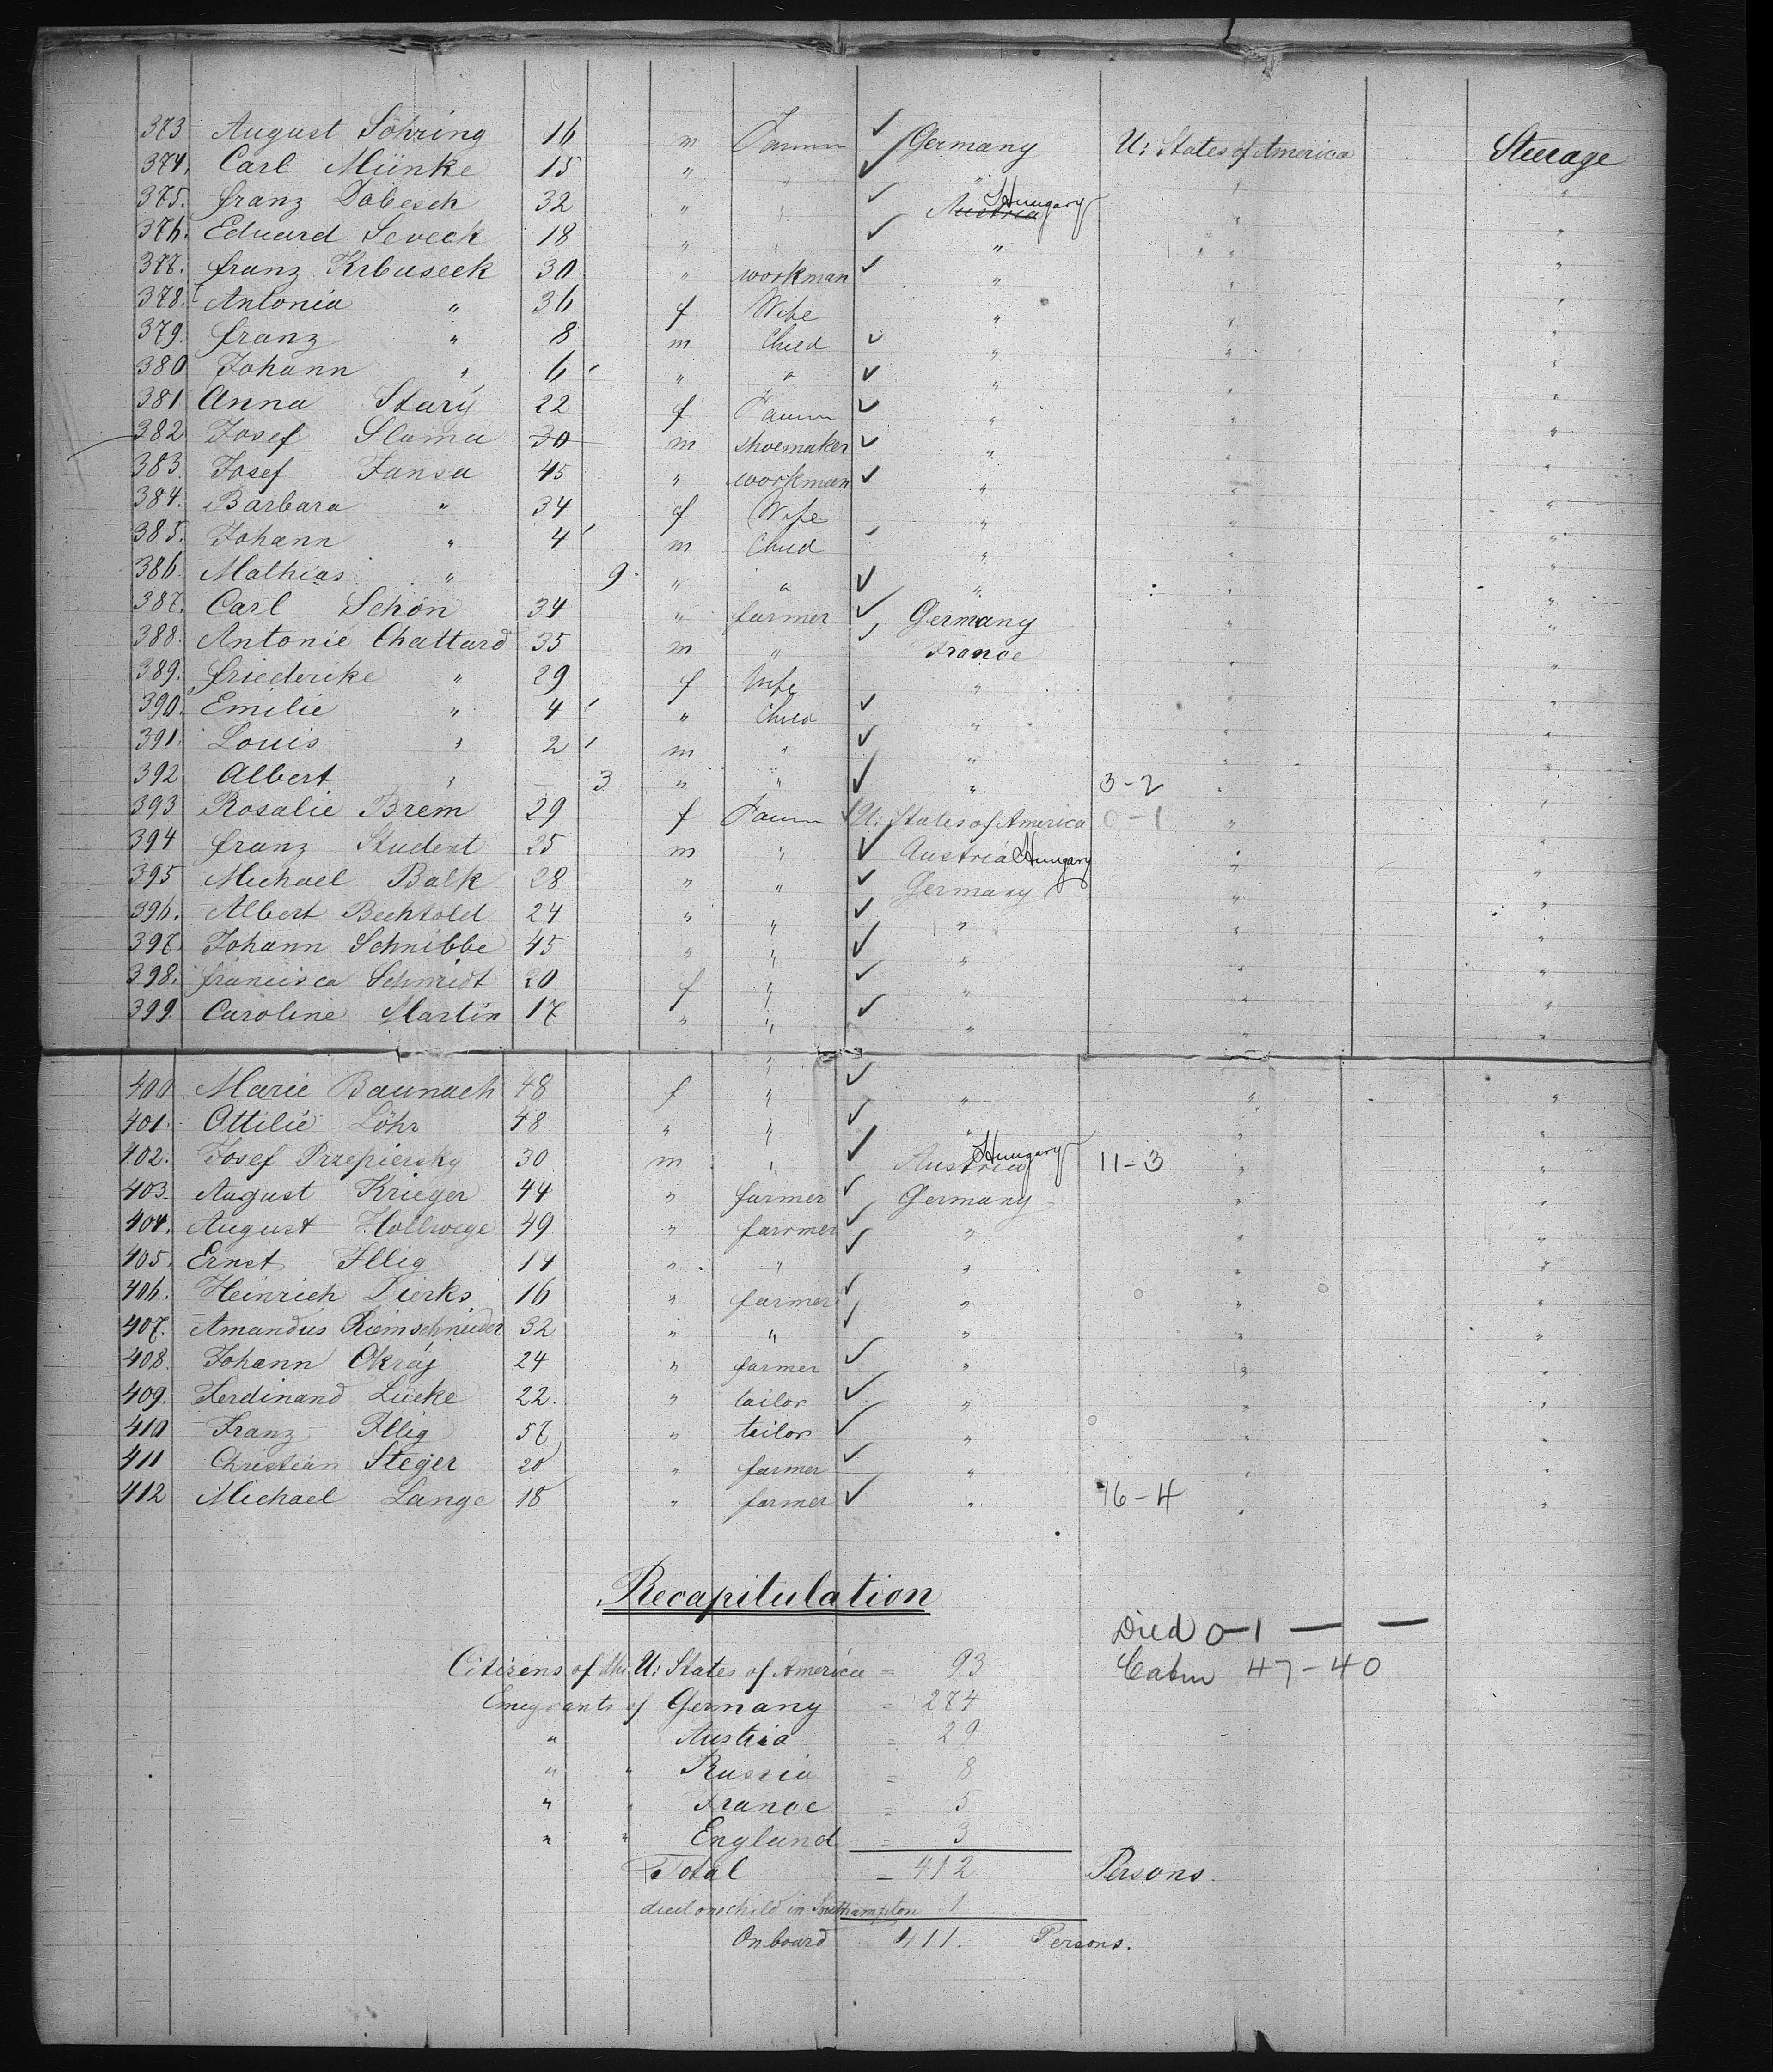 373 August Söhring 16 m Germany U: States of America Steerage
374. Carl Münke 15 " " " " "
375. franz Dobesch 32 " " Austria Hungary " "
376. Eduard Seveck 18 " " " " "
377. franz Krbuseck 30 " workman " " "
378. Antonia " 36 f Wife " " "
379. franz " 8 m Child " " "
380 Johann " 6 " " " " "
381 Anna Starÿ 22 f " " "
382 Josef Slama 30 m shoemaker " " "
383. Josef Jansa 45 " workman " " "
384. Barbara " 34 f Wife " " "
385. Johann " 4 m Child " " "
386. Mathias " 9. " " " " "
387. Carl Schön 34 " farmer Germany " "
388. Antonie Chattard 35 m " France " "
389. friederike " 29 f Wife " " "
390. Emilie " 4 " Child " " "
391. Louis " 2 m " " " "
392 Albert " 3 " " " 3-2 " "
393 Rosalie Brem 29 f U: States of America 0-1 " "
394 franz Student 25 m " Austria Hungary " "
395 Michael Balk 28 " " Germany " "
396. Albert Bechtold 24 " " " " "
397. Johann Schnibbe 45 " " " " "
398. francisca Schmidt 20 f " " " "
399. Caroline Martin 17 " " " " "
400 Marie Baunach 48 f " " " "
401. Ottilie Löhr 48 " " " " "
402. Josef Przepiersky 30 m " Austria Hungary 11-3 " "
403. August Krieger 44 " farmer Germany " "
404. August Hollwege 49 " farmer " " "
405. Ernst Illig 14 " " " " "
406. Heinrich Dierks 16 " farmer " " "
407. Amandus Riemschneider 32 " " " " "
408. Johann Okráj 24 " farmer " " "
409. Ferdinand Lücke 22. " tailor " " "
410 Franz Illig 57 " tailor " " "
411 Christian Steger 20 " farmer " " "
412 Michael Lange 18 " farmer " 16-4 " "
Recapitulation
Died 0-1 — —
Citizens of the U: States of America = 93
Cabin 47-40
Emegrants of Germany = 274
" Austria = 29
" " Russia = 8
" " France = 5
" " England = 3
Total = 412 Persons.
died one child in Southampton 1
On board 411. Persons.